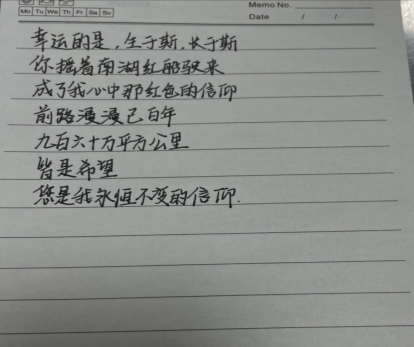 Memo No.
Mo Tu We Th Fr Sa Su
Date / /
幸运的是,生于斯,长于斯
你摇着南湖红船驶来
成了我心中那红色的信仰
前路漫漫已百年
九百六十万平方公里
皆是希望
您是我永恒不变的信仰.